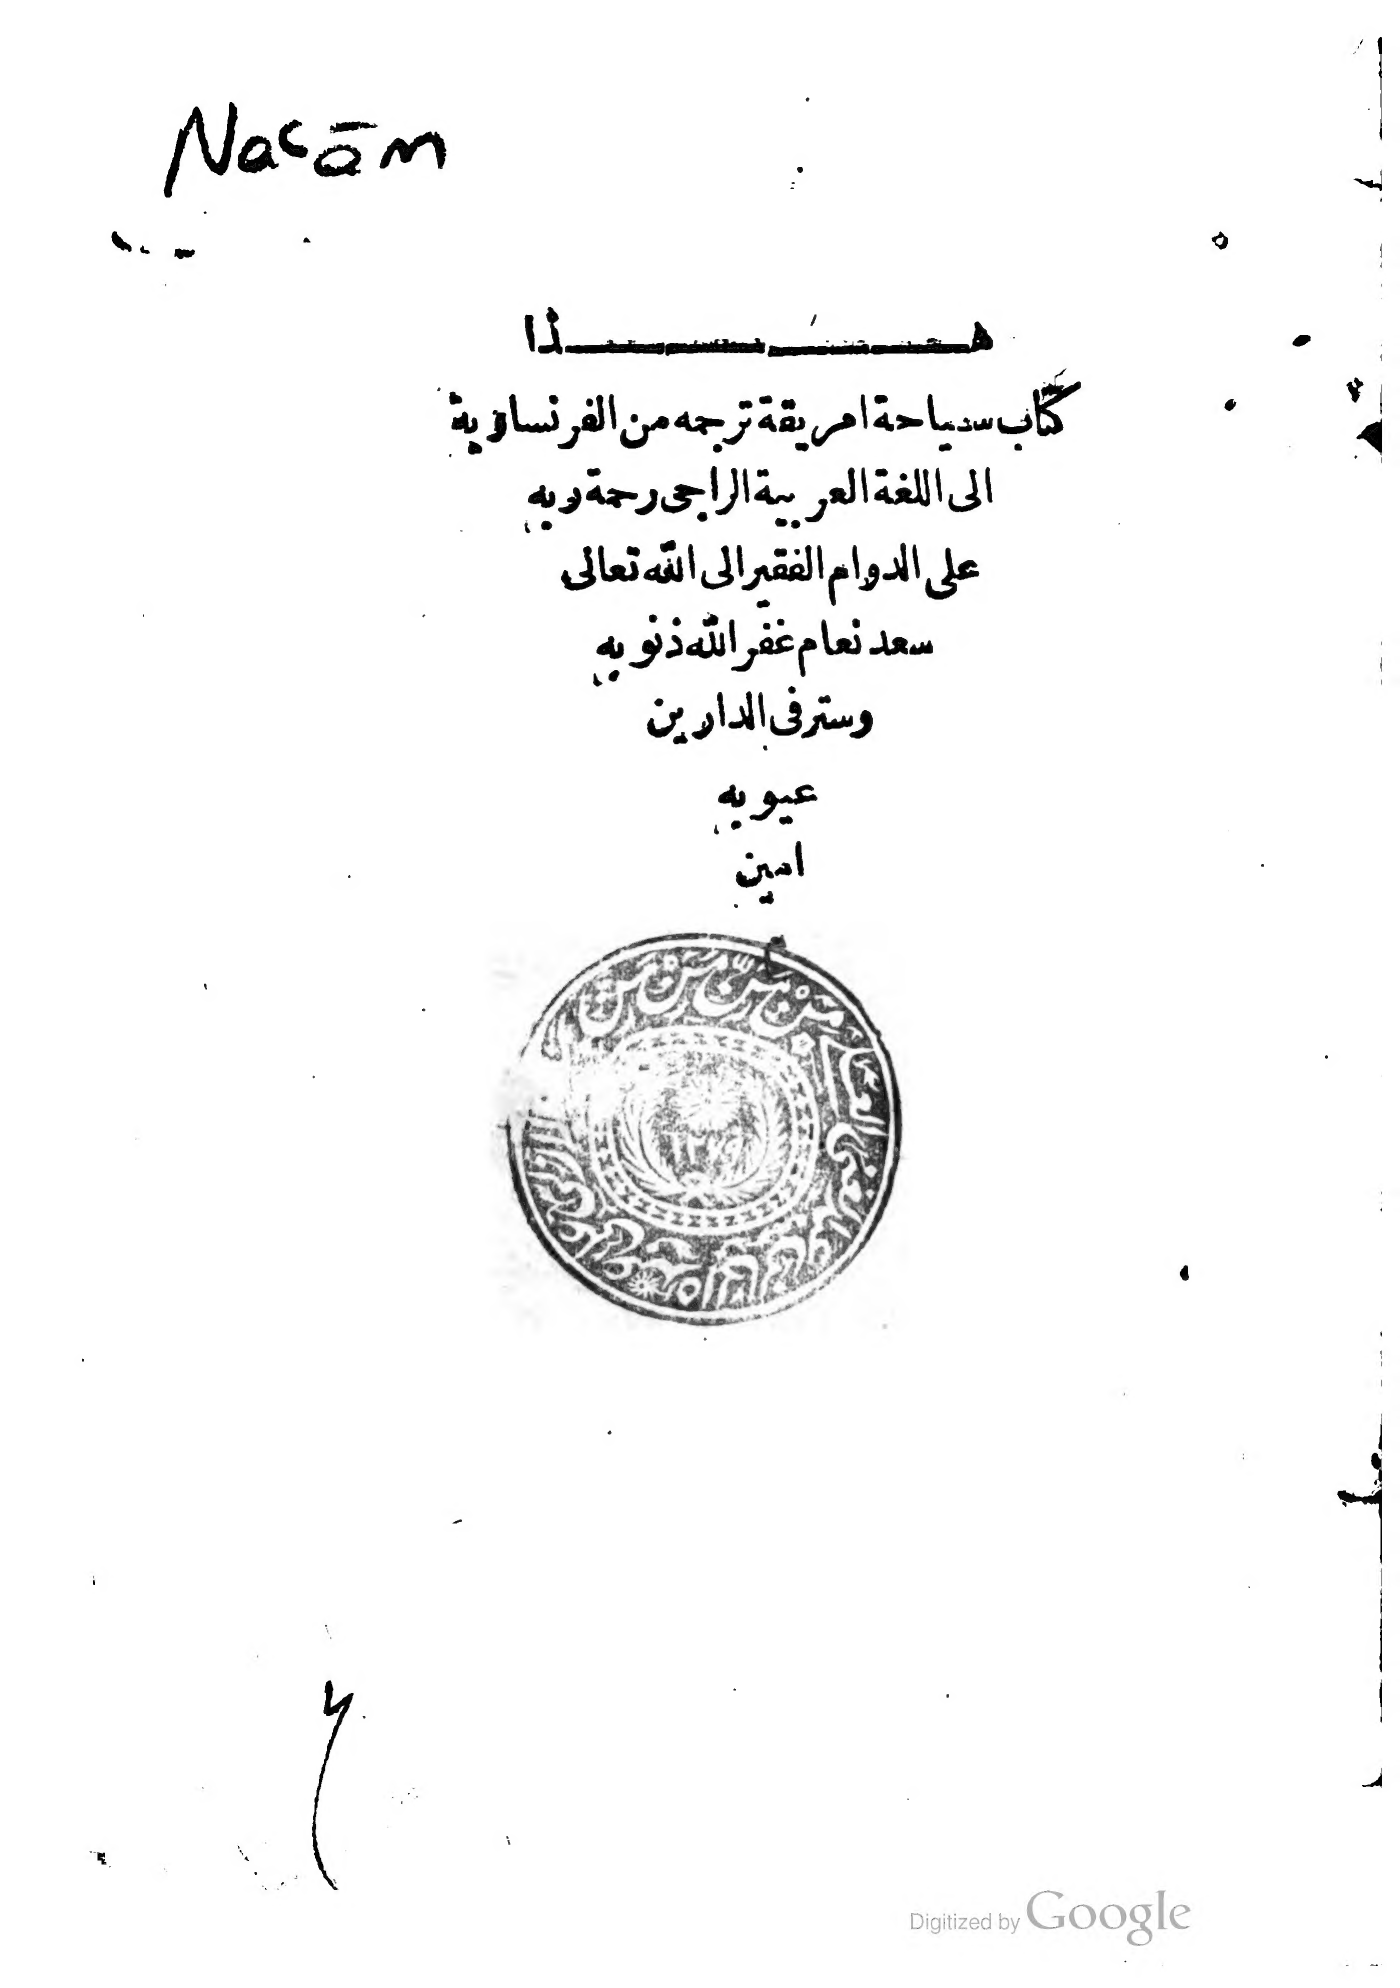 Nacām
هـــــذا
كتاب سياحة امريقة ترجمه من الفرنساوية
الى اللغة العربية الراجى رحمة ربه
على الدوام الفقير الى الله تعالى
سعد نعام غفر الله ذنوبه
وستر فى الدارين
عيوبه
امين
١٢٧٩
Digitized by Google